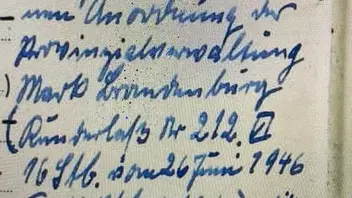 nen Anordnung der
Provinzialverwaltung
) Mark Brandenburg
(Runderlaß Nr 212. VI
16 Stb. vom 26 Juni 1946